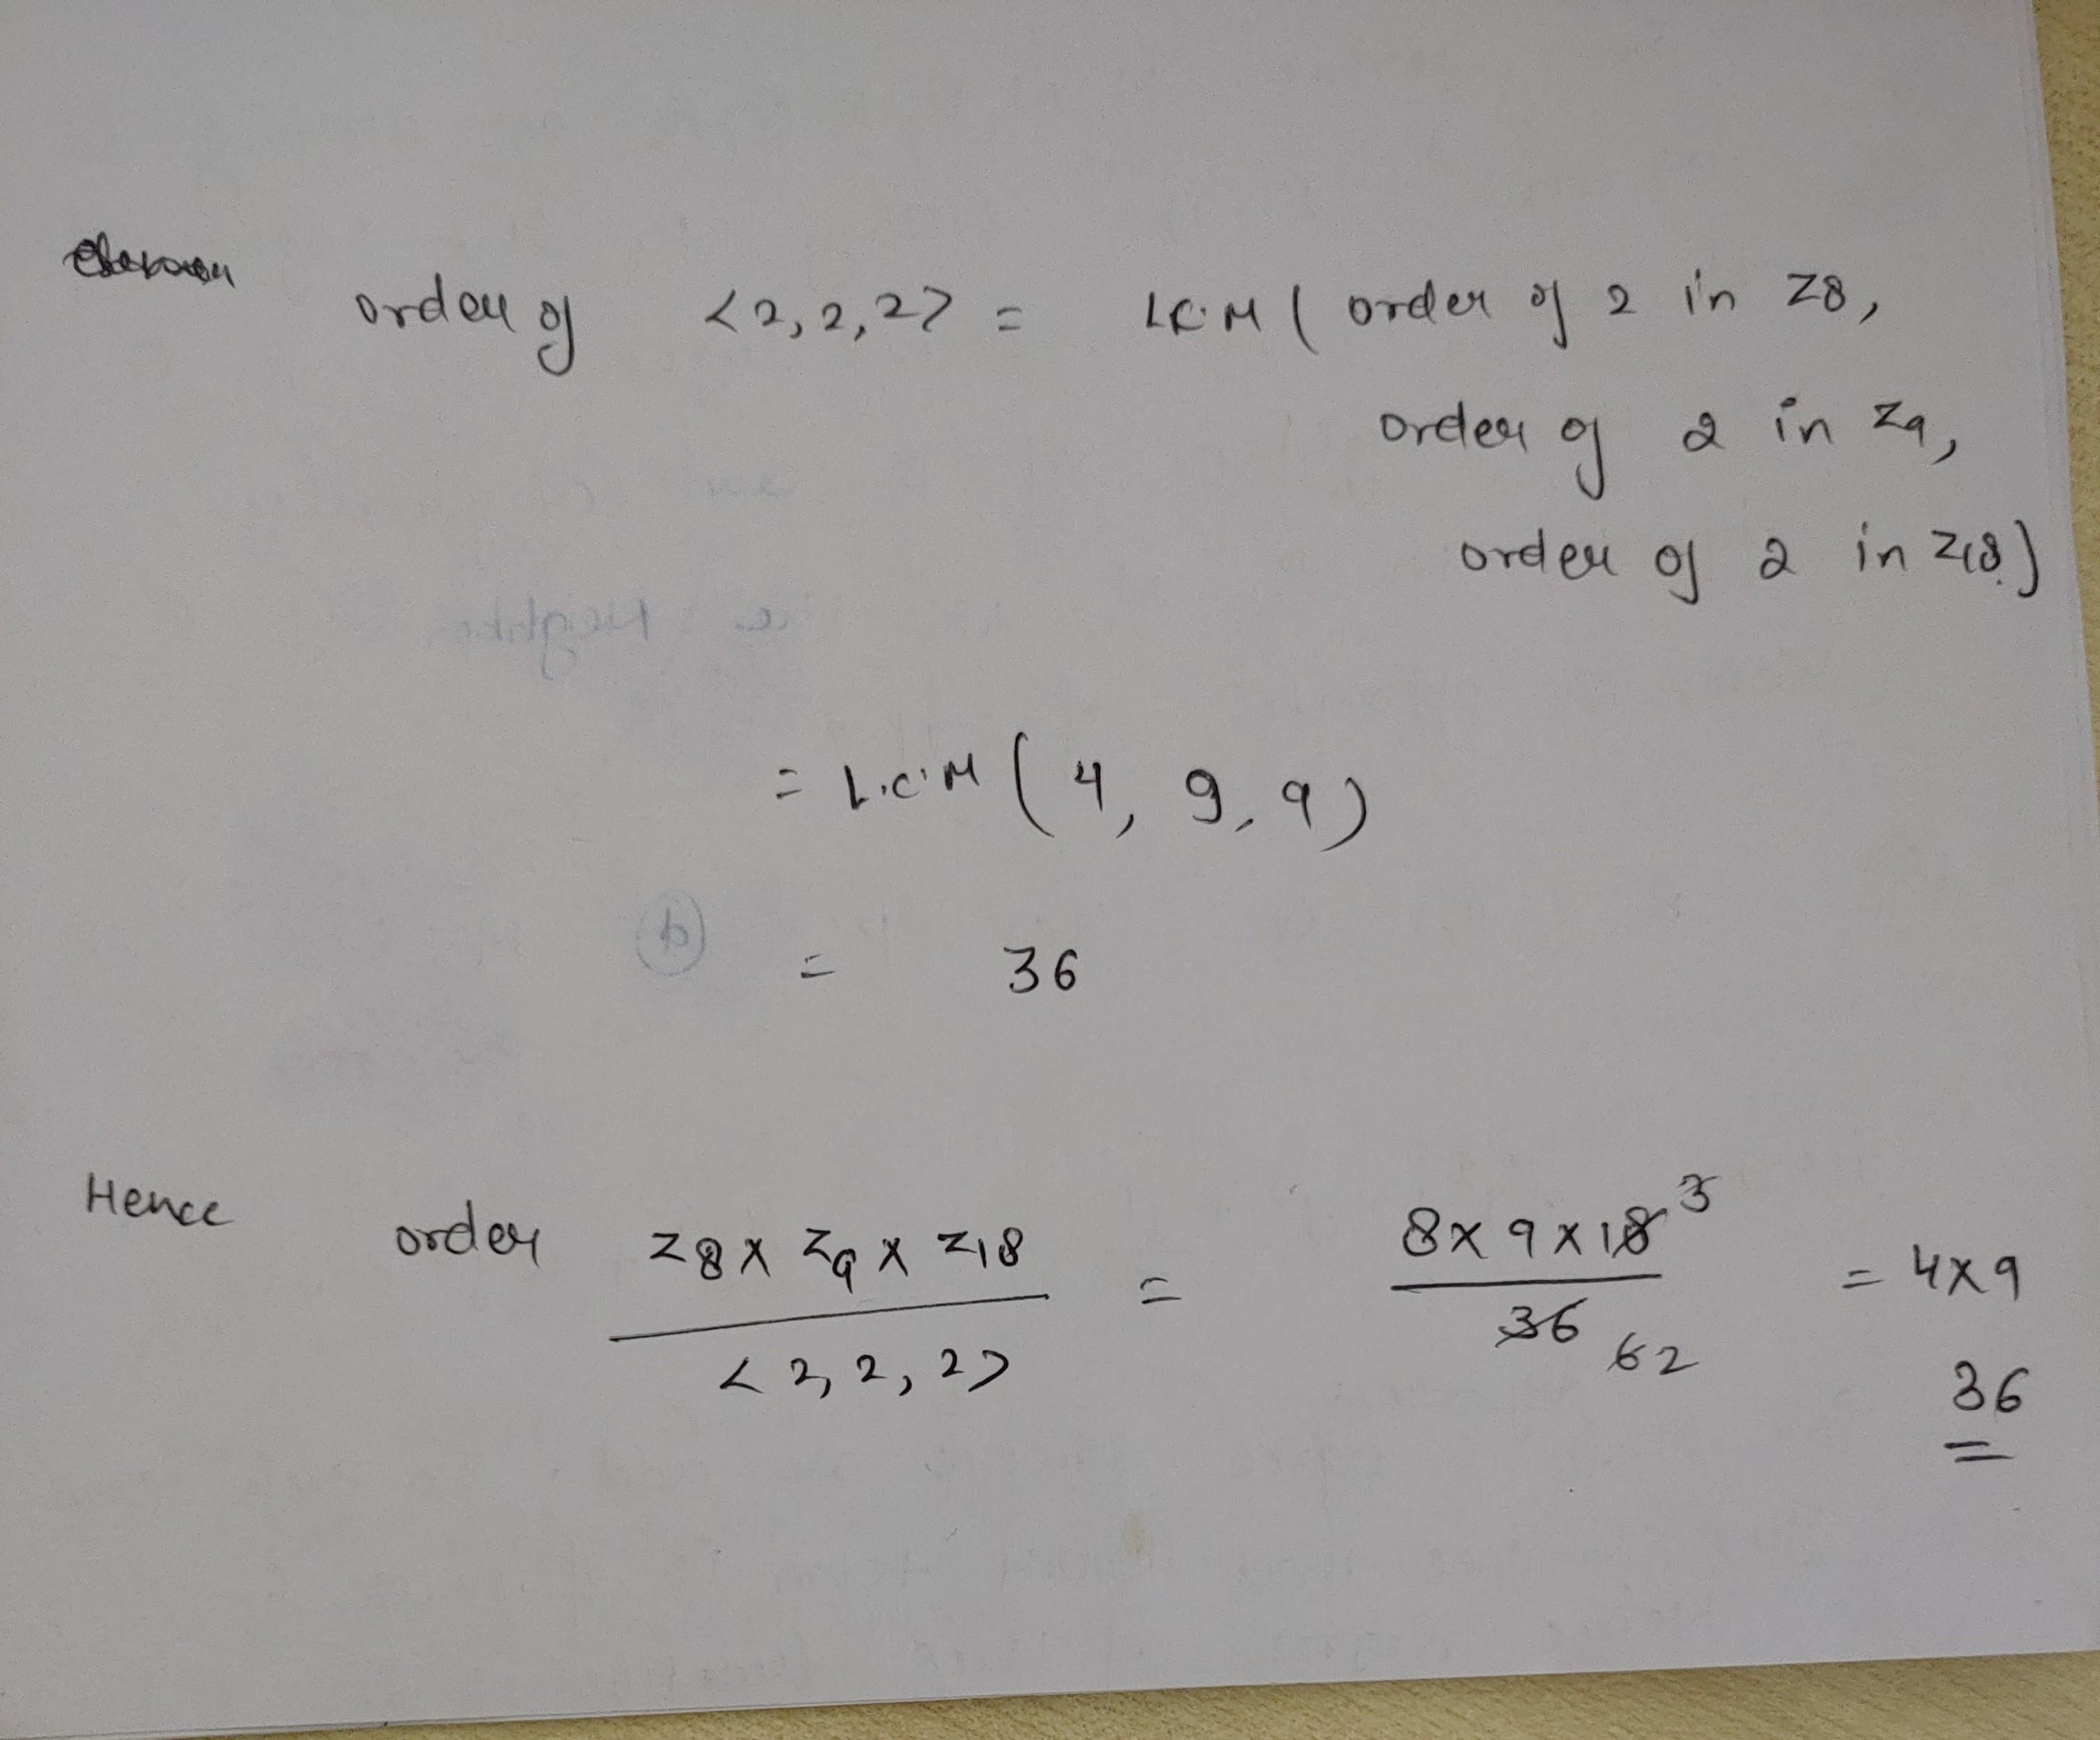 order of <2,2,2> = L.C.M ( order of 2 in Z8,
order of 2 in Z9,
order of 2 in Z18)
= L.C.M ( 4, 9, 9)
= 36
Hence order Z8 x Z9 x Z18 / <2,2,2> = 8x9x18 3 / 36 6 2 = 4x9
36